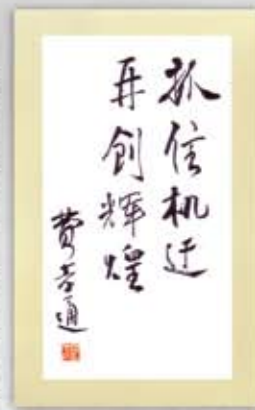 抓信机迂
再创辉煌
费孝通